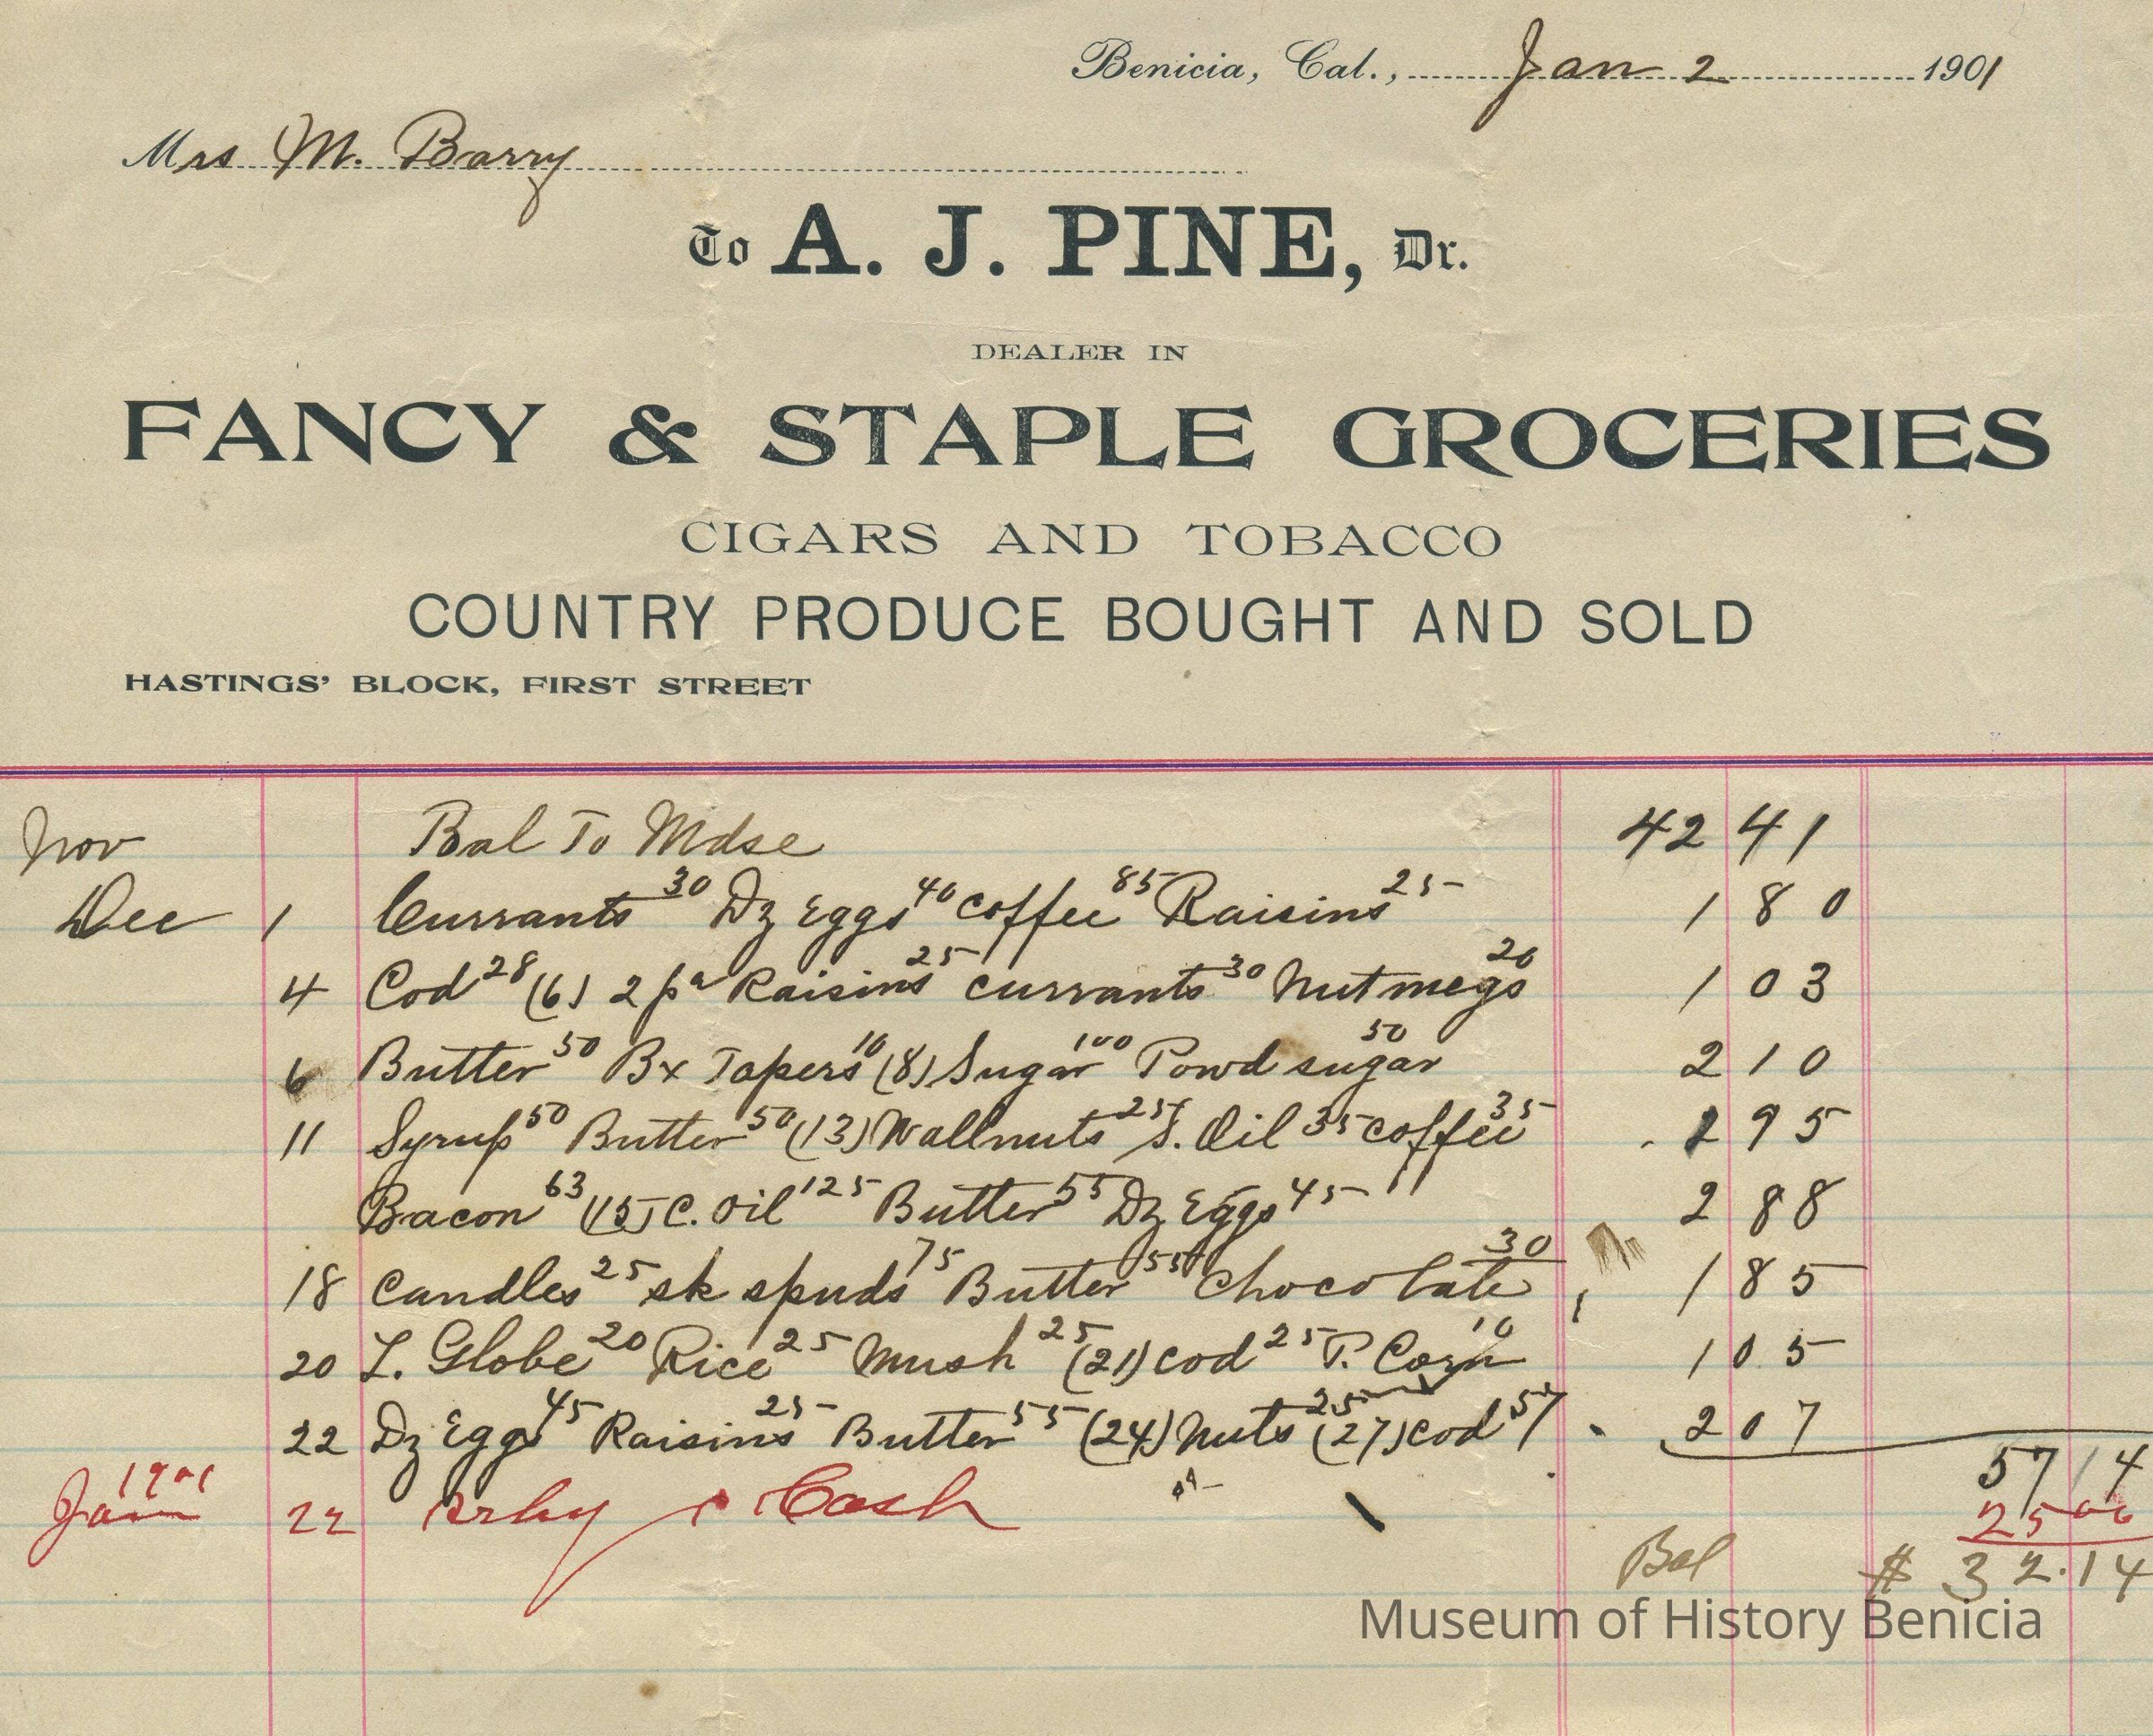 Benicia, Cal., Jan 2 1901
Mrs M. Barry
To A. J. PINE, Dr.
DEALER IN
FANCY & STAPLE GROCERIES
CIGARS AND TOBACCO
COUNTRY PRODUCE BOUGHT AND SOLD
HASTINGS' BLOCK, FIRST STREET
Nov Bal To Mdse 42 41
Dec 1 Currants 30 Dz Eggs 40 Coffee 85 Raisins 25 1 80
4 Cod 28 (6) 2 Raisins 25 Currants 30 Nutmegs 20 1 03
6 Butter 50 Bx Tapers 10 (8) Sugar 100 Powd sugar 50 2 10
11 Syrup 50 Butter 50 (13) Wallnuts 25 S. Oil 35 coffee 35 95
Bacon 63 (15) C. Oil 125 Butter 55 Dz Eggs 45 2 88
18 Candles 25 sk spuds 75 Butter 55 Chocolate 30 1 85
20 L. Globe 20 Rice 25 Mush 25 (21) Cod 25 P. Corn 10 1 05
22 Dz Eggs 45 Raisins 25 Butter 55 (24) Nuts 25 (27) Cod 57 2 07
57 14
1901
Jan 22 Cash 25 00
Bal $ 32.14
Museum of History Benicia